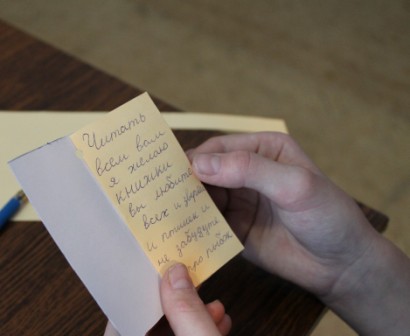 Читать
всем вам
я желаю
книжки
вы любите
всех и
и птичек и
не забудьте
про рыбок